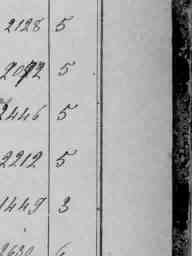 2128 5
2072 5
2446 5
2212 5
1449 3